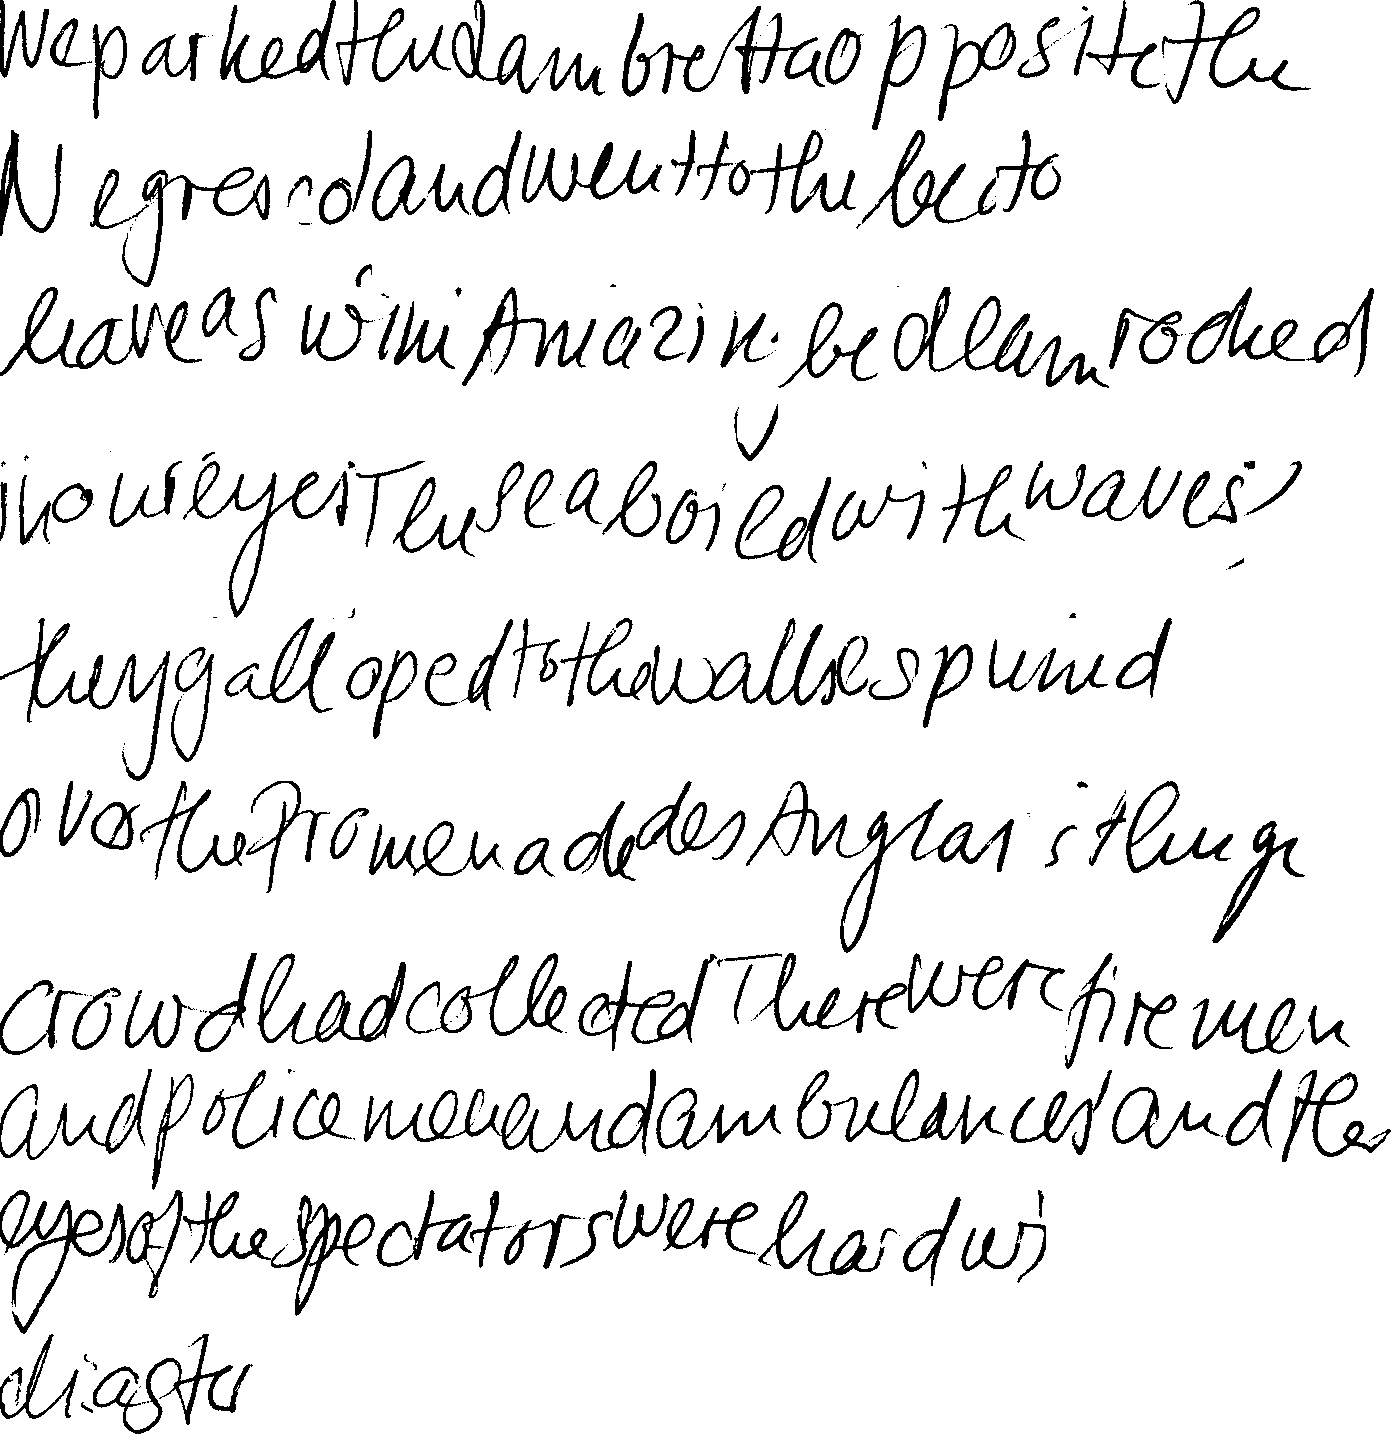 We parked the Lambretta opposite the
Negresco and went to the bec to
have a swim Amazin. bedlam rocked
in our eyes The sea boiled with waves,
they galloped to the wall spumed
over the Promenade des Anglais it huge
crowd had collected There were firemen
and policemen and ambulances and the
eyes of the spectators were hard wi
diaster